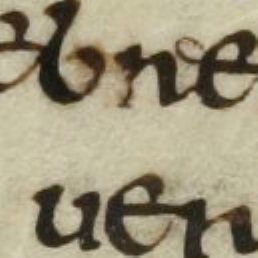 ebne
uen